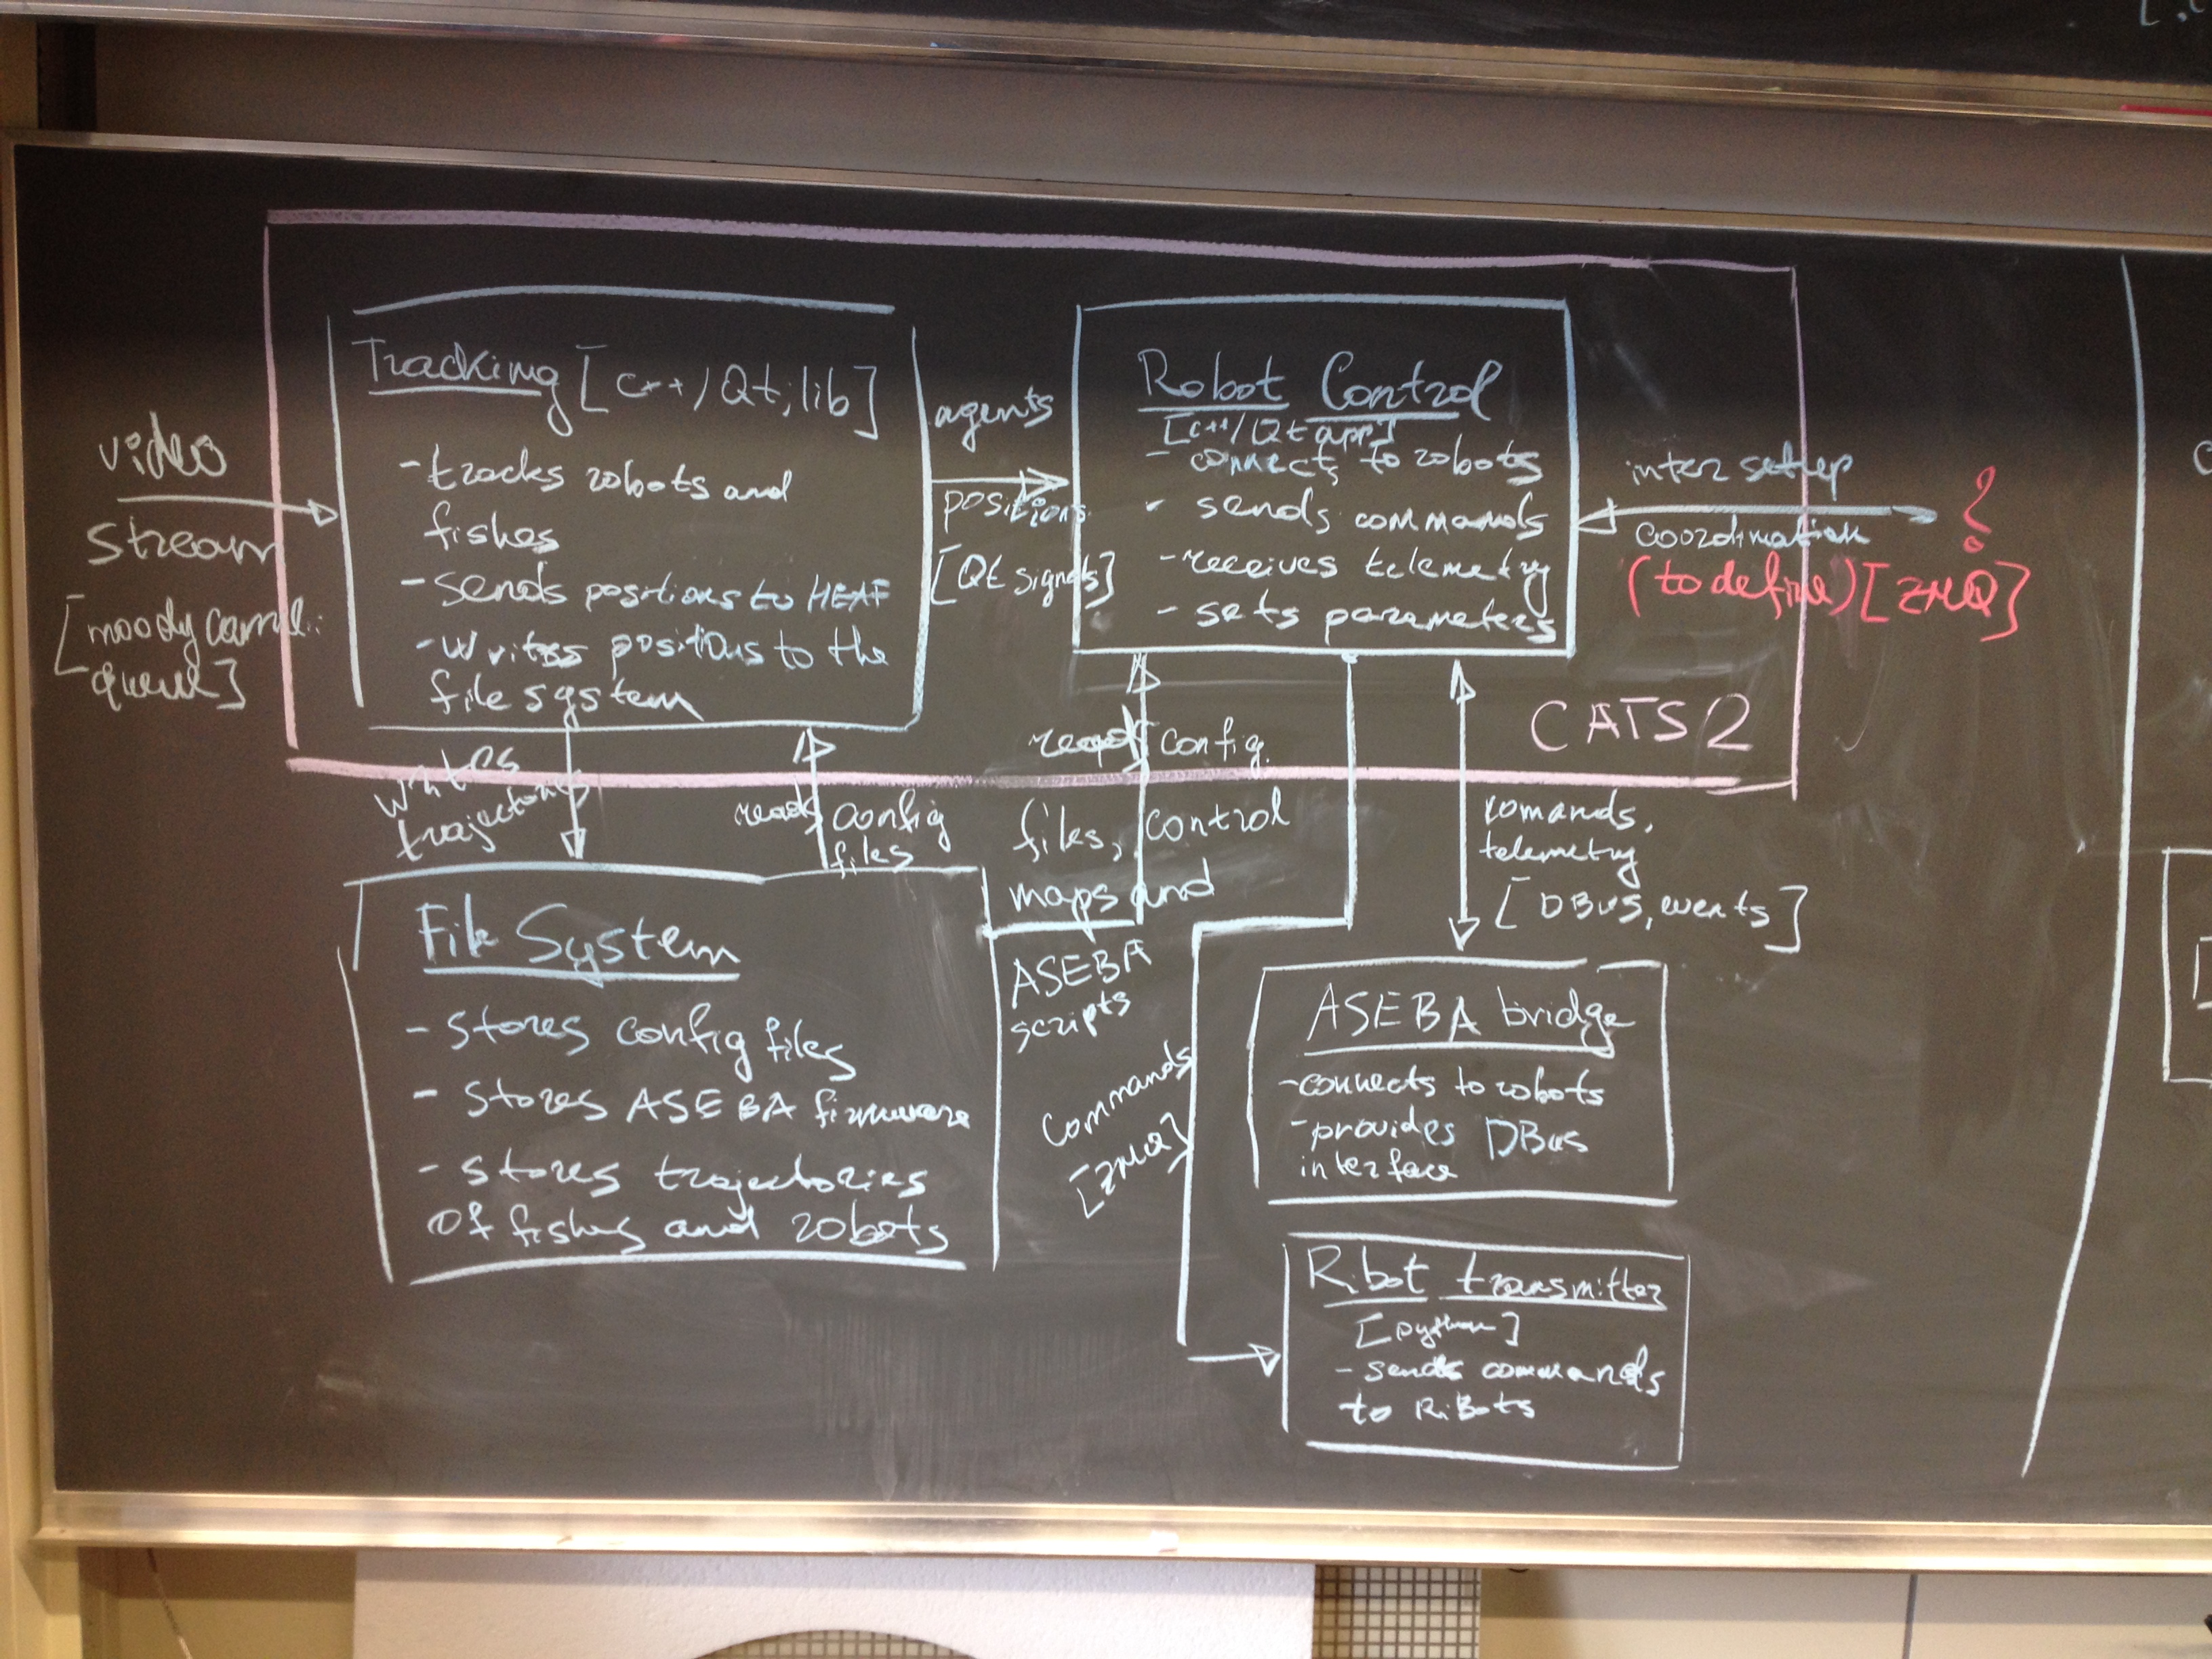 video
stream
[moodycamel::
queue]
Tracking [C++/Qt, lib]
- tracks robots and
fishes
- sends positions to HEAF
- writes positions to the
file system
agents
positions
[Qt signals]
Robot Control
[C++/Qt app]
- connects to robots
- sends commands
- receives telemetry
- sets parameters
inter setup
coordination
(to define) [ZMQ]
?
CATS2
writes
trajectories
reads config
files
reads config
files, control
maps and
ASEBA
scripts
comands,
telemetry
[DBus, events]
File System
- stores config files
- stores ASEBA firmware
- stores trajectories
of fishes and robots
Commands
[ZMQ]
ASEBA bridge
- connects to robots
- provides DBus
interface
Ribot transmitter
[python]
- sends commands
to RiBots